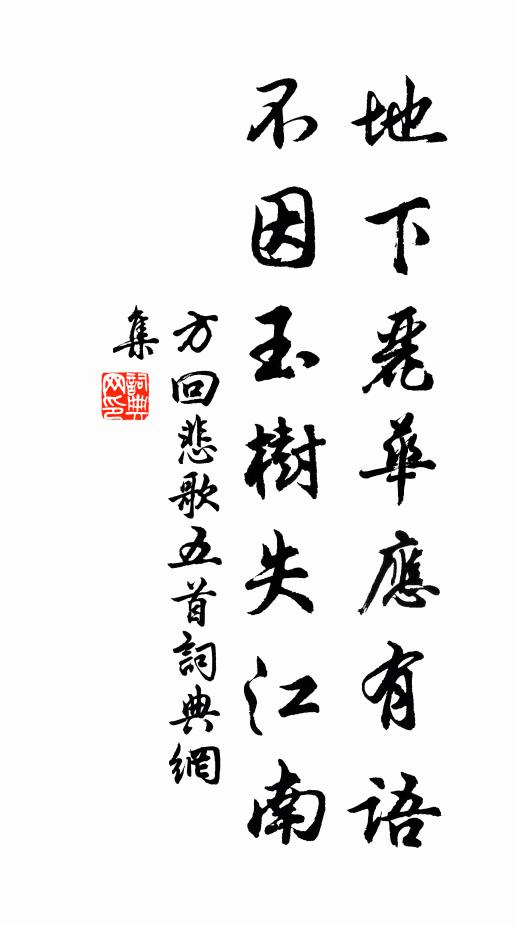 地下麗華應有語
不因玉樹失江南
方回悲歌五首詞典網
集
詞典
网印